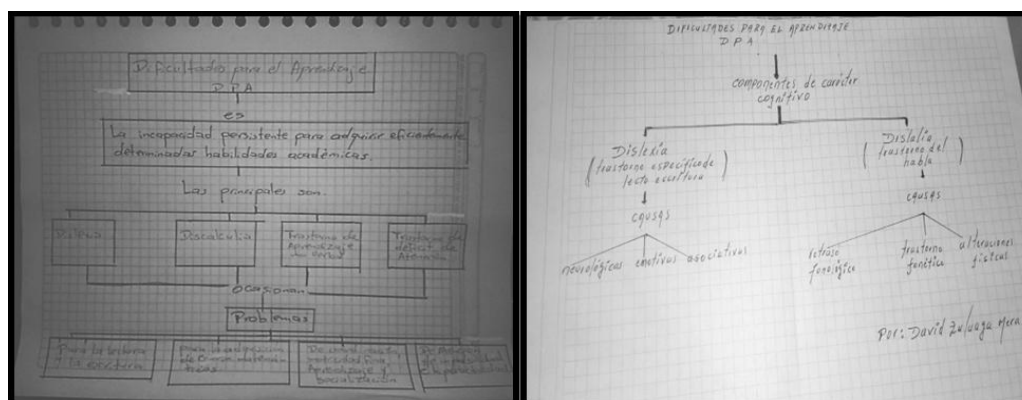 Dificultades para el Aprendizaje
D.P.A
es
La incapacidad persistente para adquirir eficientemente
determinadas habilidades académicas.
Las principales son.
Dislexia
Discalculia
Trastorno de
Aprendizaje
no Verbal
Trastorno de
déficit de
Atención
Ocasionan
Problemas
Para la lectura
o la escritura
para la adquisición
de
De
motricidad fina
Aprendizaje y
Socialización
De
de impulsividad
e hiperactividad
DIFICULTADES PARA EL APRENDIZAJE
D P A
componentes de carácter
cognitivo
Dislexia
(trastorno específico de
lecto escritura)
causas
neurológicas emotivas asociativas
Dislalia
(trastorno del
habla)
causas
retraso
fonológico
trastorno
fonético
alteraciones
físicas
Por: David Zuluaga Mora